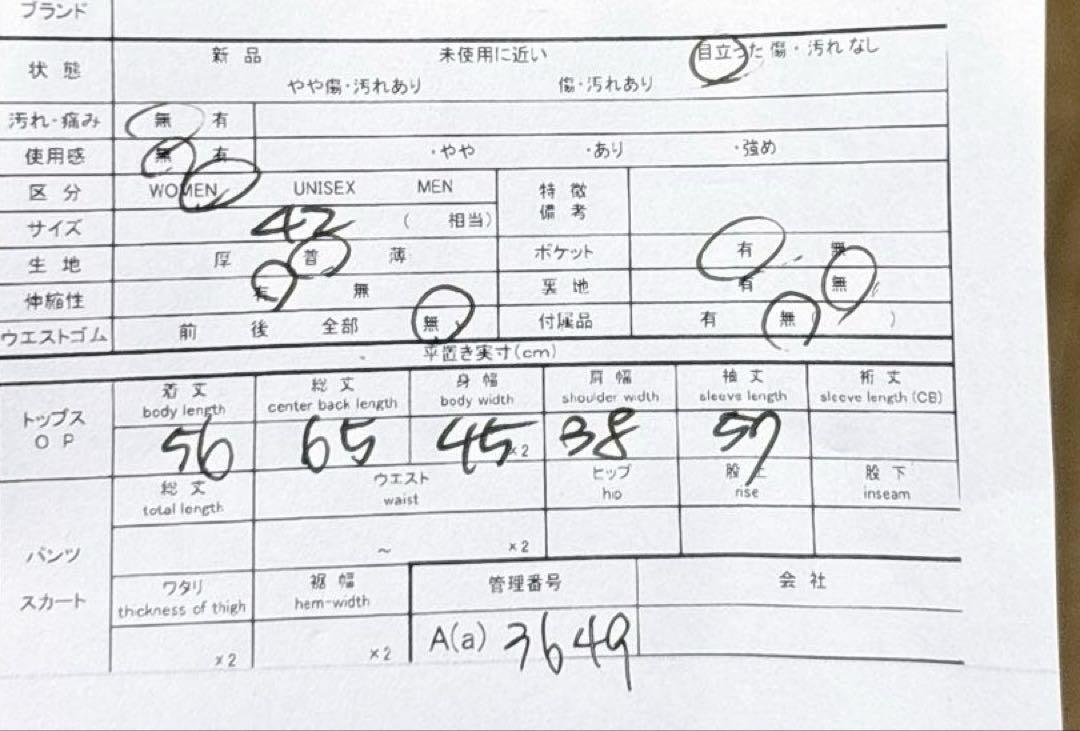 ブランド
状態 新品 未使用に近い 目立った傷・汚れなし
やや傷・汚れあり 傷・汚れあり
汚れ・痛み 無 有
使用感 無 有 ・やや ・あり ・強め
区分 WOMEN UNISEX MEN 特徴備考
サイズ 42 ( 相当)
生地 厚 普 薄 ポケット 有 無
伸縮性 有 無 裏地 有 無
ウエストゴム 前 後 全部 無 付属品 有 無( )
平置き実寸(cm)
トップス OP 着丈 総丈 身幅 肩幅 袖丈 裄丈
body length center back length body width shoulder width sleeve length sleeve length (CB)
56 65 45×2 38 57
パンツ スカート 総丈 ウエスト ヒップ 股上 股下
total length waist hip rise inseam
~ ×2
ワタリ 裾幅 管理番号 会社
thickness of thigh hem-width
×2 ×2 A(a) 3649